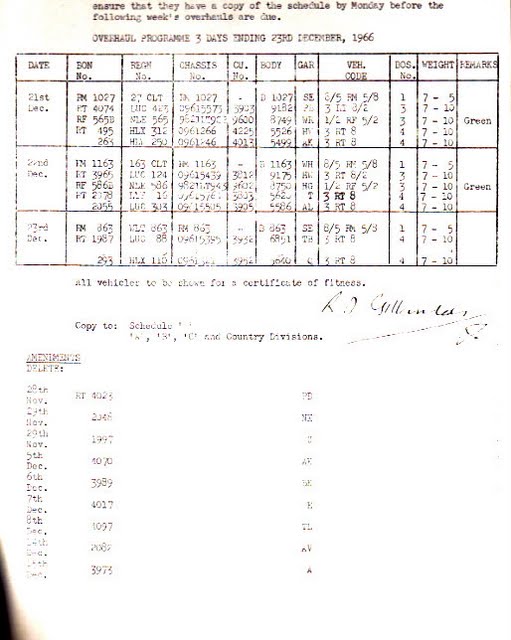 ensure that they have a copy of the schedule by Monday before the
following week's overhauls are due.
OVERHAUL PROGRAMME 3 DAYS ENDING 23RD DECEMBER, 1966
DATE BON No. REGN No. CHASSIS No. CU. No. BODY GAR VEH. CODE DOS. No. WEIGHT REMARKS
21st RM 1027 27 CLT RM 1027 B 1027 SE 8/5 RM 5/8 1 7 - 5
Dec. RT 4074 LUC 423 3903 9182 3 7 - 10
RF 565B NLE 565 9600 8749 WR 1/2 RF 5/2 3 7 - 10 Green
RT 495 HLX 312 0961266 4225 5526 HW 3 RT 8 4 7 - 10
263 HLW 250 0961246 4013 5499 AK 3 RT 8 4 7 - 10
22nd RM 1163 163 CLT RM 1163 B 1163 WH 8/5 RM 5/8 1 7 - 5
Dec. RT 3965 LUC 124 09615439 3812 9175 3 RT 8/2 3 7 - 10
RF 586B NLE 586 9602 8750 HG 1/2 RF 5/2 3 7 - 10 Green
RT 16 T 3 RT 8 4 7 - 10
2055 LUC 303 3905 5586 AL 3 RT 8 4 7 - 10
23rd RM 863 WLT 863 RM 863 B 863 SE 8/5 RM 5/8 1 7 - 5
Dec. RT 1987 LUC 88 09615395 3932 6851 TB 3 RT 8 4 7 - 10
293 HLX 110 3952 Q 3 RT 8 4 7 - 10
all vehicles to be shown for a certificate of fitness.
Copy to: Schedule
'A', 'B', 'C' and Country Divisions.
AMENDMENTS
DELETE:
28th
Nov. RT 4023 PD
29th
Nov. 2348 NX
29th
Nov. 1997
5th
Dec. 4070
6th
Dec. 3989
7th
Dec. 4017
8th
Dec. 4097 TL
14th
Dec. 2082 AV
Dec. 3973 A